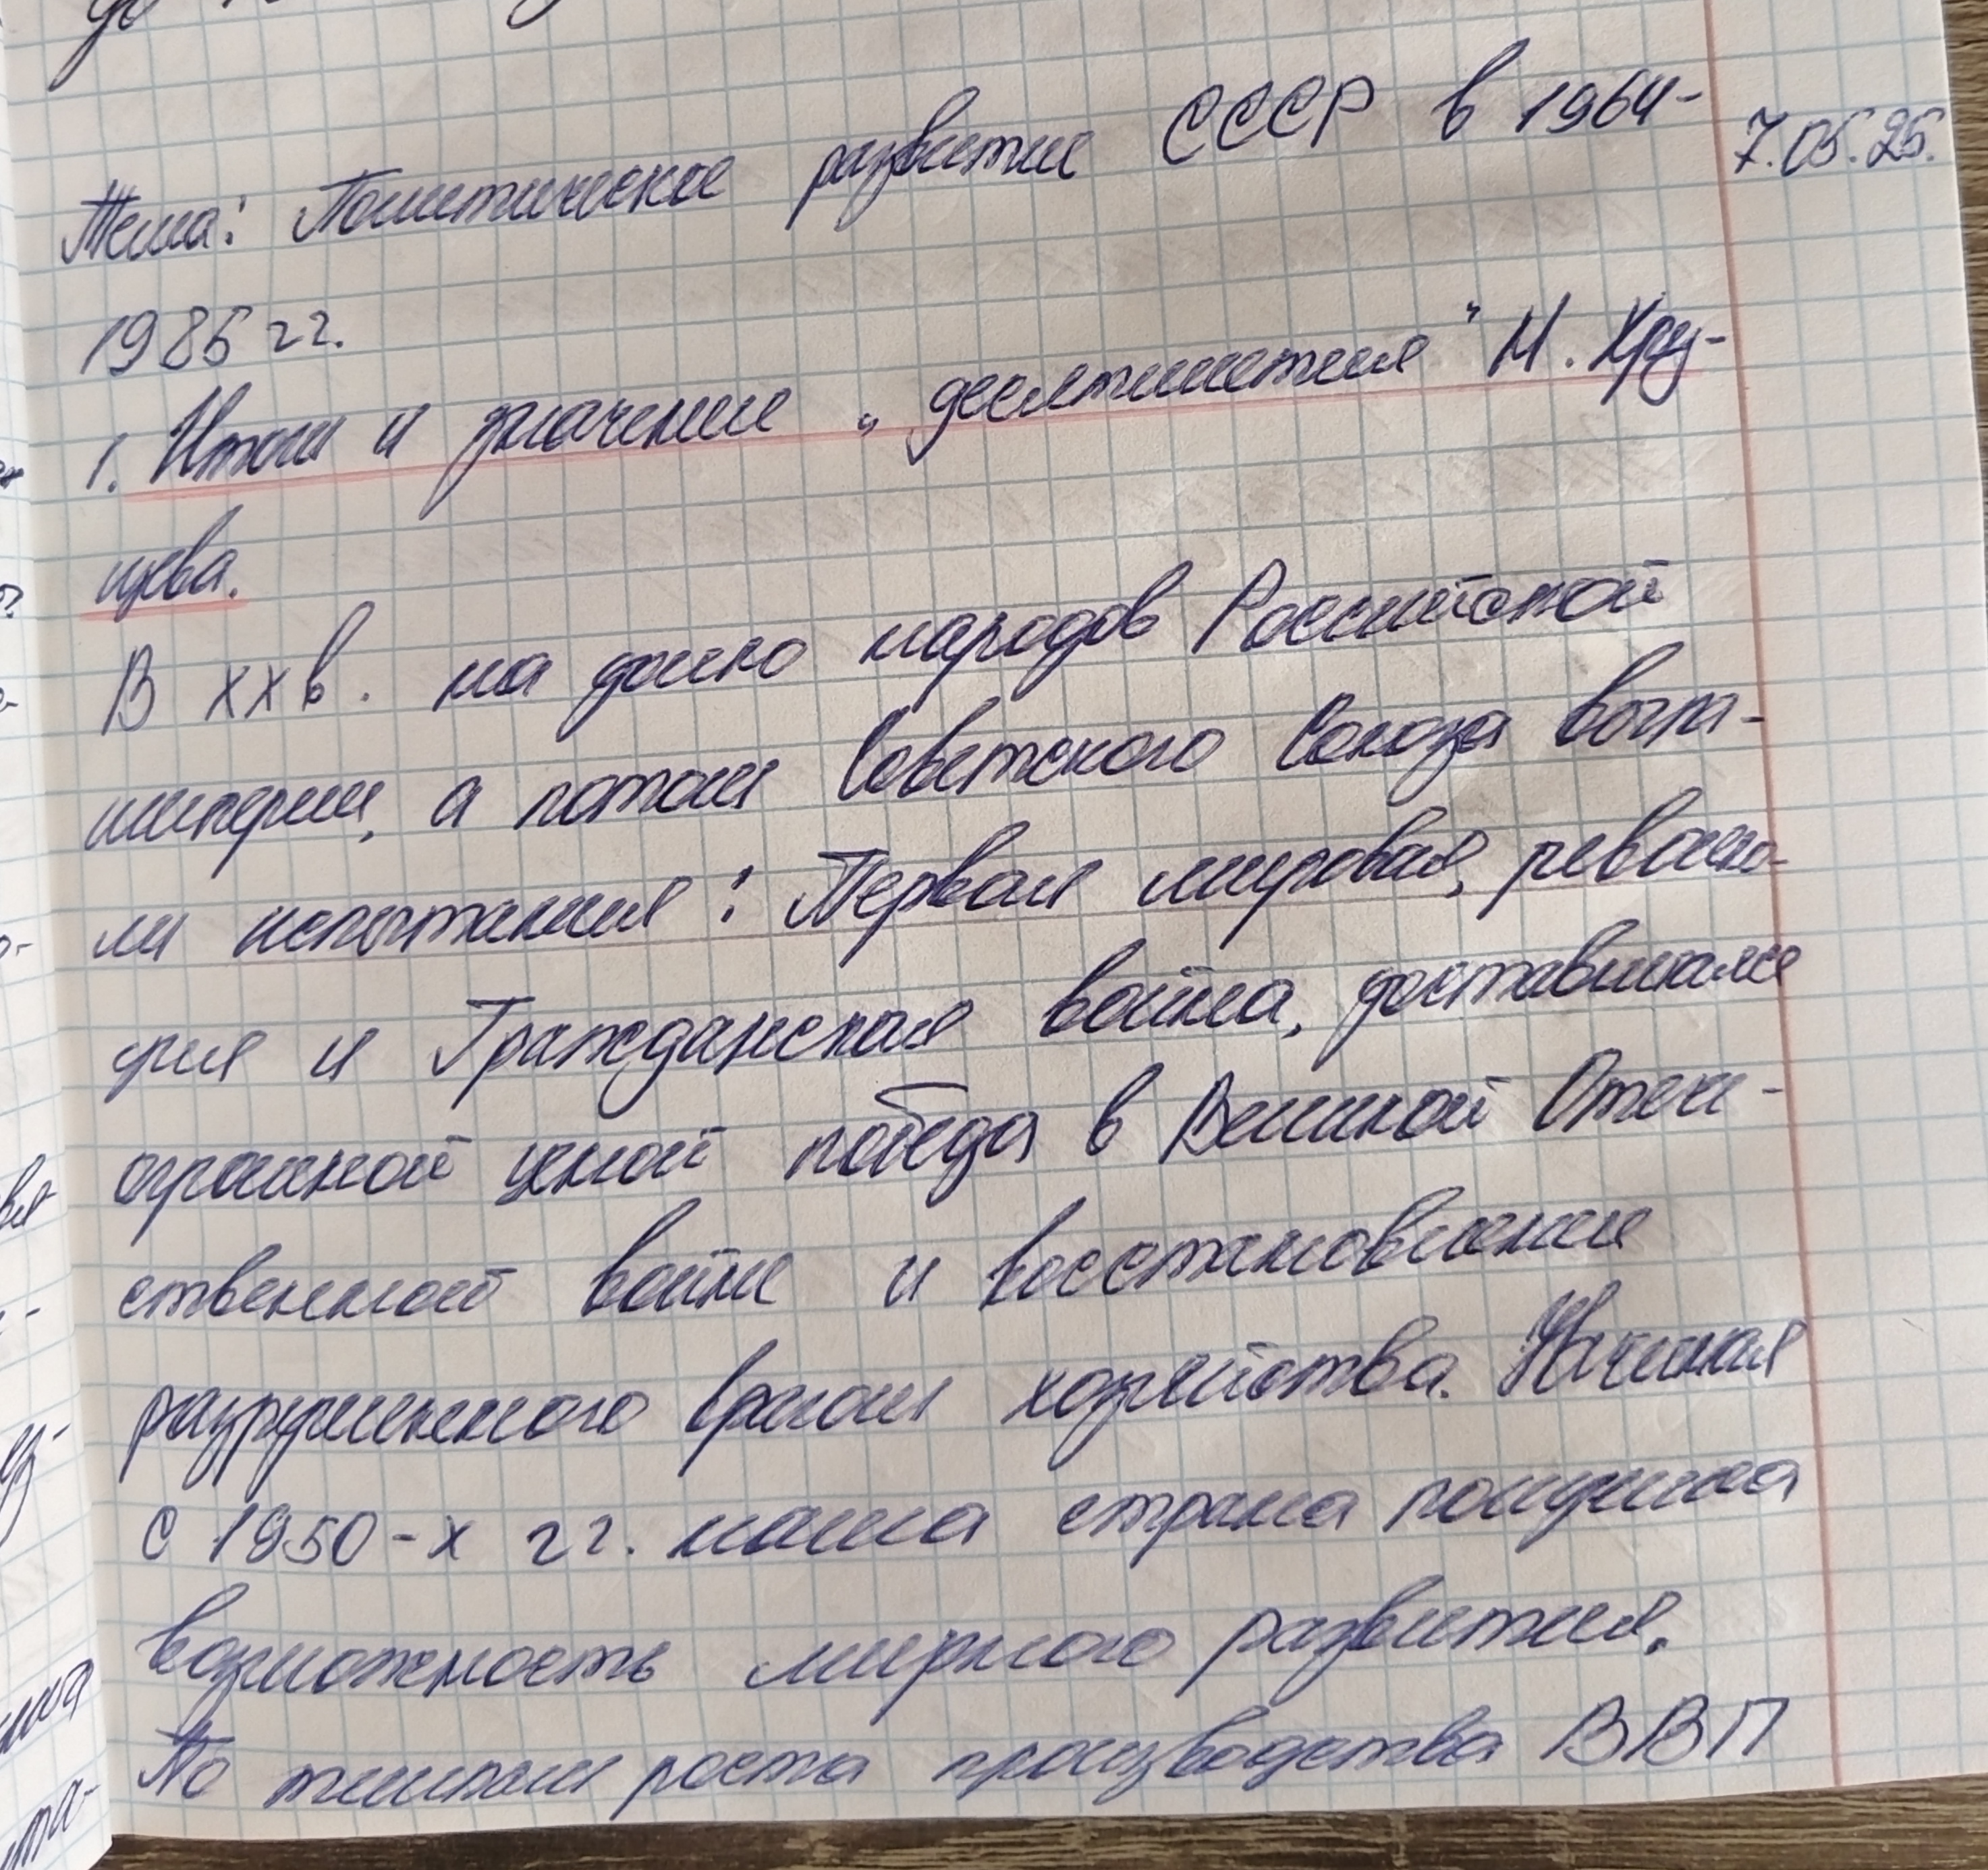 7.05.25.
Тема: Политическое развитие СССР в 1964-
1985 гг.
1. Итоги и значение „десятилетия" Н. Хру-
щева.
В XX в. на долю народов Российской
империи, а потом Советского Союза выпа-
ли испытания: Первая мировая, револю-
ция и Гражданская война, доставшаяся
огромной ценой победа в Великой Отече-
ственной войне и восстановление
разрушенного врагом хозяйства. Начиная
с 1950-х гг. наша страна получила
возможность мирного развития.
По темпам роста производства ВВП